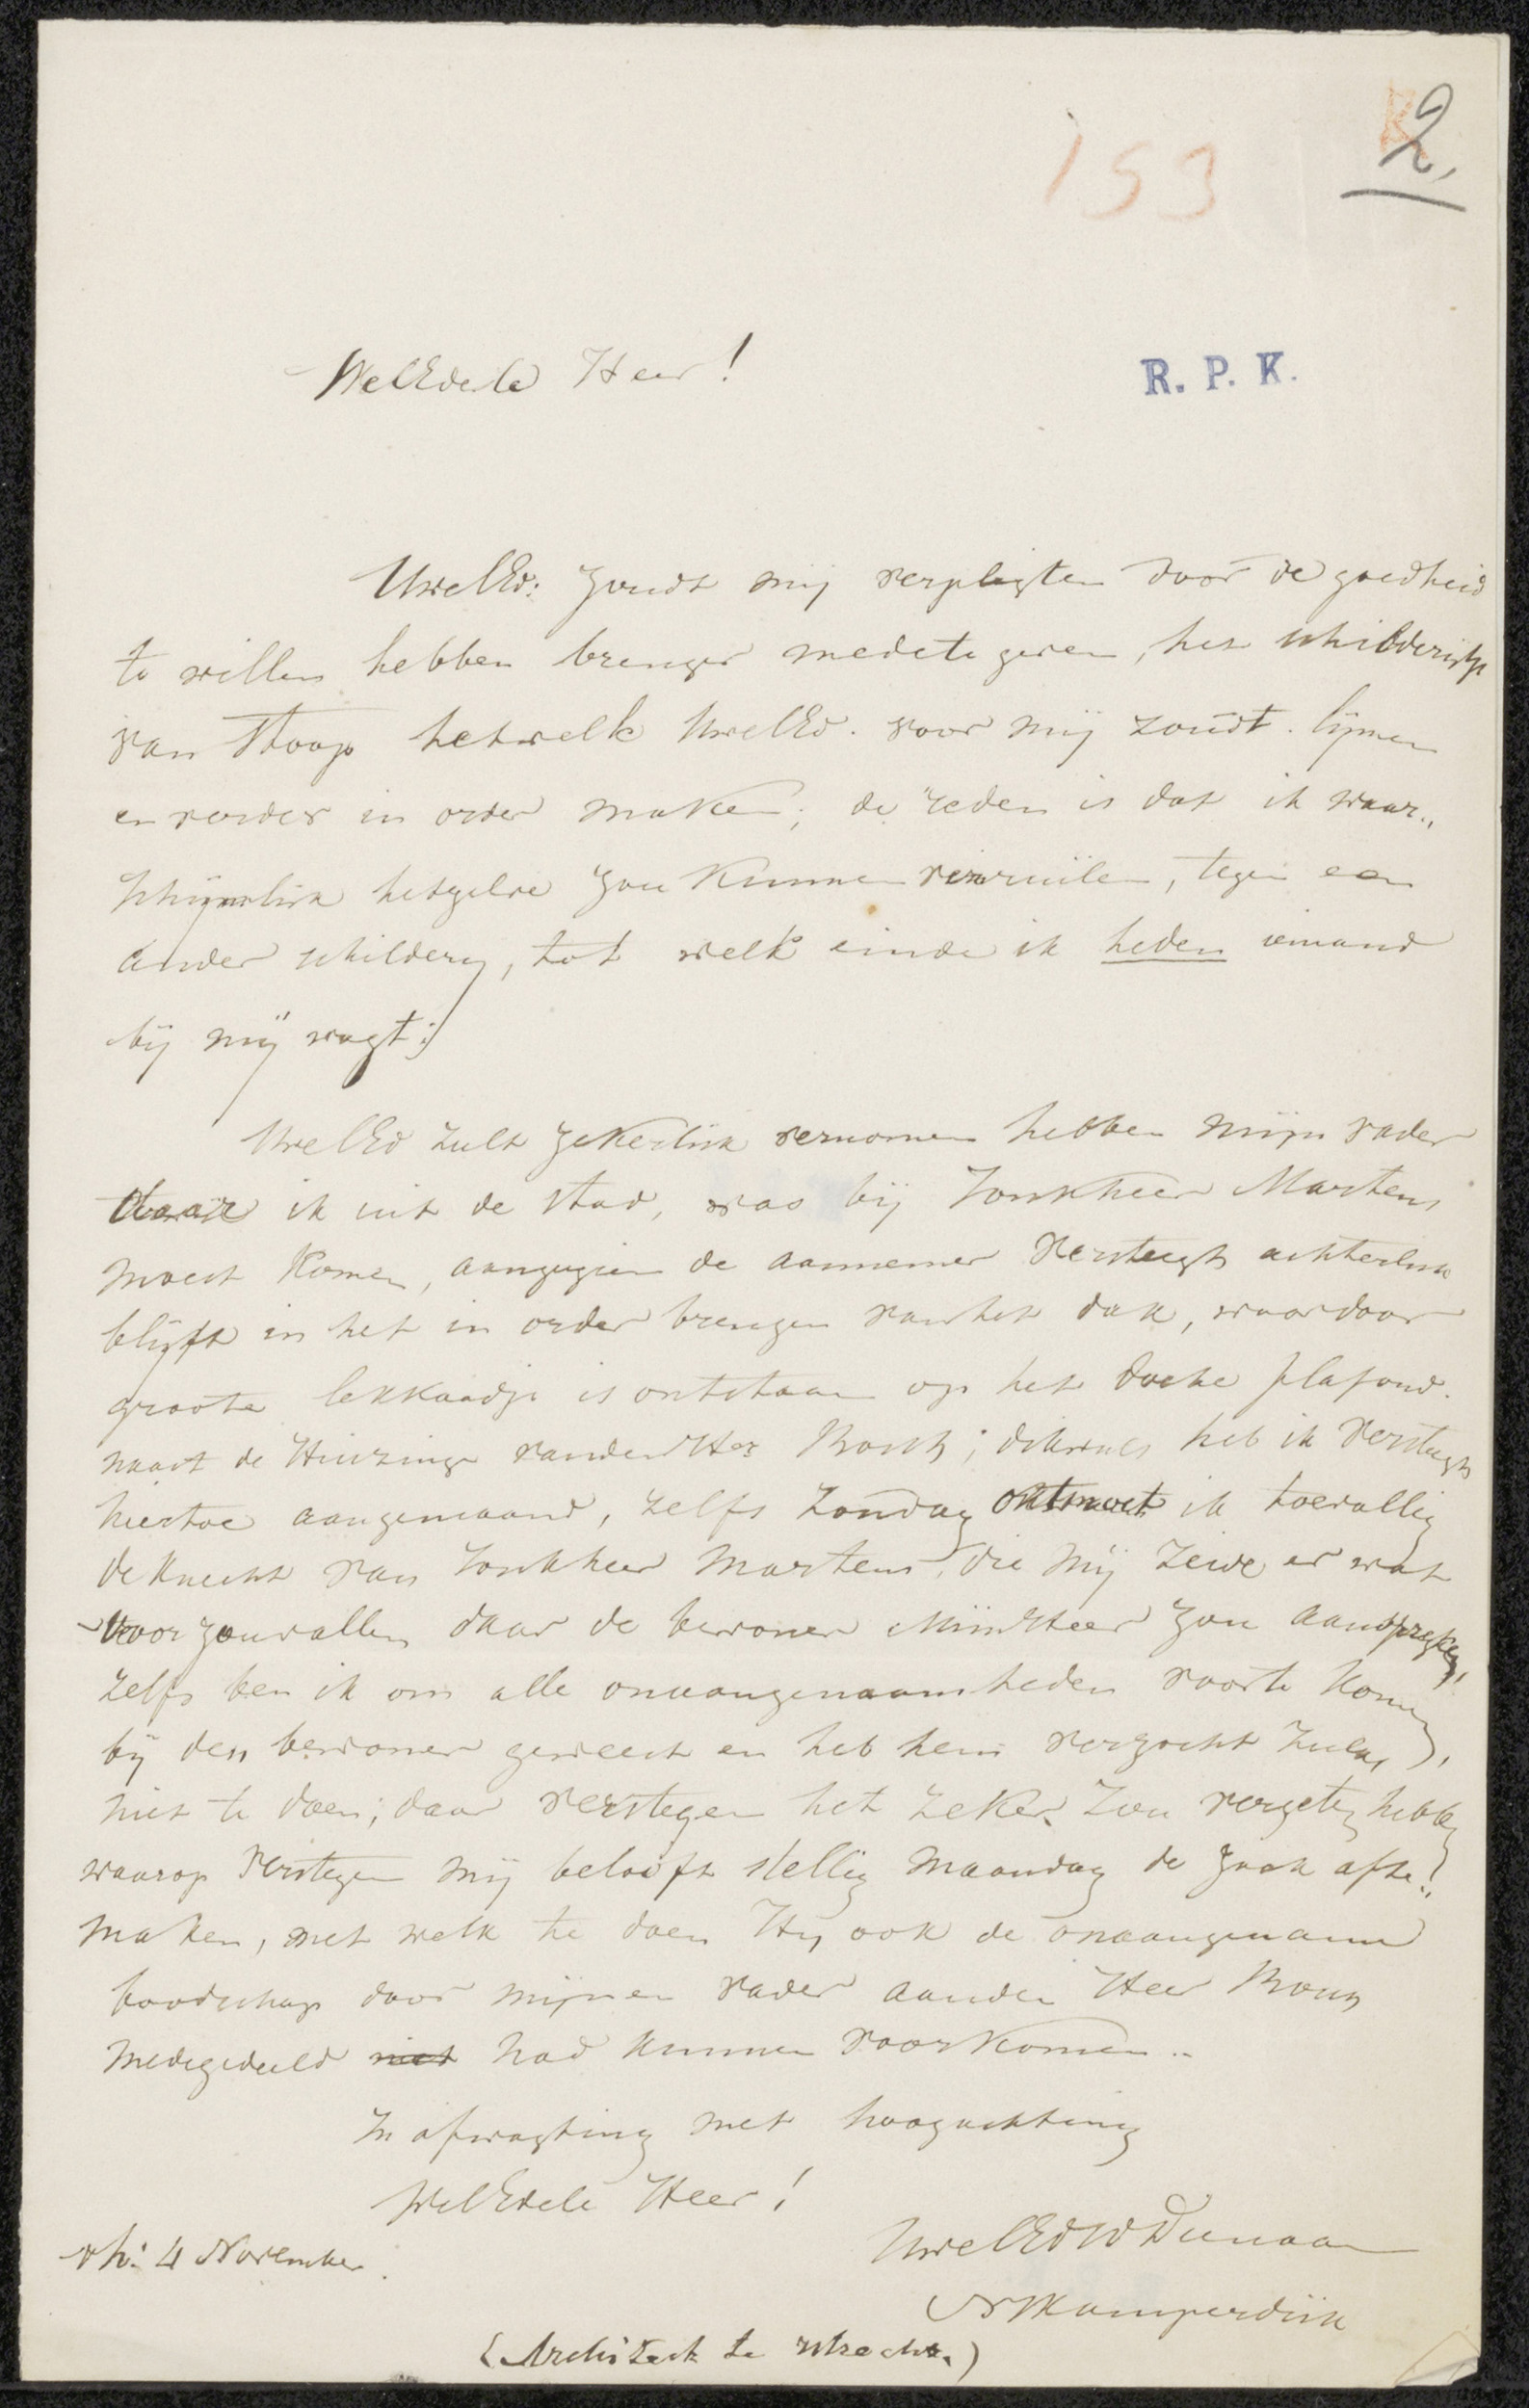 2,
153
WelEdele Heer!
R. P. K.
UwelEd: zoudt mij verpligten door de goedheid
te willen hebben brenger medete geven, het schilderijtje
van Stoop hetwelk UwelEd. voor mij zoudt lijmen
en verder in order maken; de reden is dat ik waar„
schijnelijk hetzelve zou kunnen verruilen, tegen een
ander schildery, tot welk einde ik heden iemand
bij mij wagt;
UwelEd zult zekerlijk vernomen hebben mijn vader
daar ik uit de stad, was bij Jonkheer Martens
moest komen, aangezien de aannemer Versteegh achterlijk
blijft in het in order brengen van het dak, waardoor
groote lekkaadje is ontstaan op het doeke plafond.
naast de Huizinge van den Heer Bosch; dikwijls heb ik Versteegh
hiertoe aangemaand, zelfs Zondag ontmoet ik toevallig
de knecht van Jonkheer Martens, die mij zeide er wat
voor zou vallen daar de bewoner Mijnheer zou aanspreken,
zelfs ben ik om alle onaangenaamheden voor te komen,
bij den bewoner geweest en heb hem verzocht zulks
niet te doen; daar Verstegen het zeker zou vergeten hebben
waarop Verstegen mij belooft stellig Maandag de zaak afte„
maken, met welk te doen Hij ook de onaangename
boodschap door mijnen vader aanden Heer Bosch
medegedeeld niet had kunnen voorkomen..
In afwagting met hoogachting
WelEdele Heer!
UwelEd W Dienaar
4 November
N Kamperdijk
(Architect te Utrecht.)